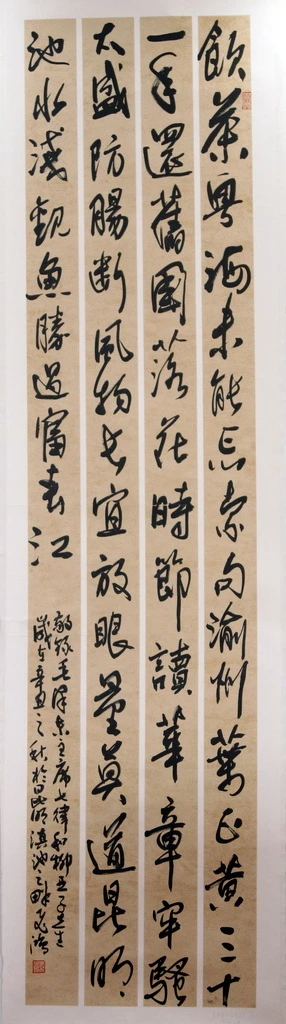 飲茶粵海未能忘索句渝州葉正黃三十
一年還舊國落花時節讀華章牢騷
太盛防腸斷風物長宜放眼量莫道昆明
池水淺觀魚勝過富春江
敬錄毛澤東主席七律和柳亞子先生
歲在辛丑之秋於昆明滇池之畔